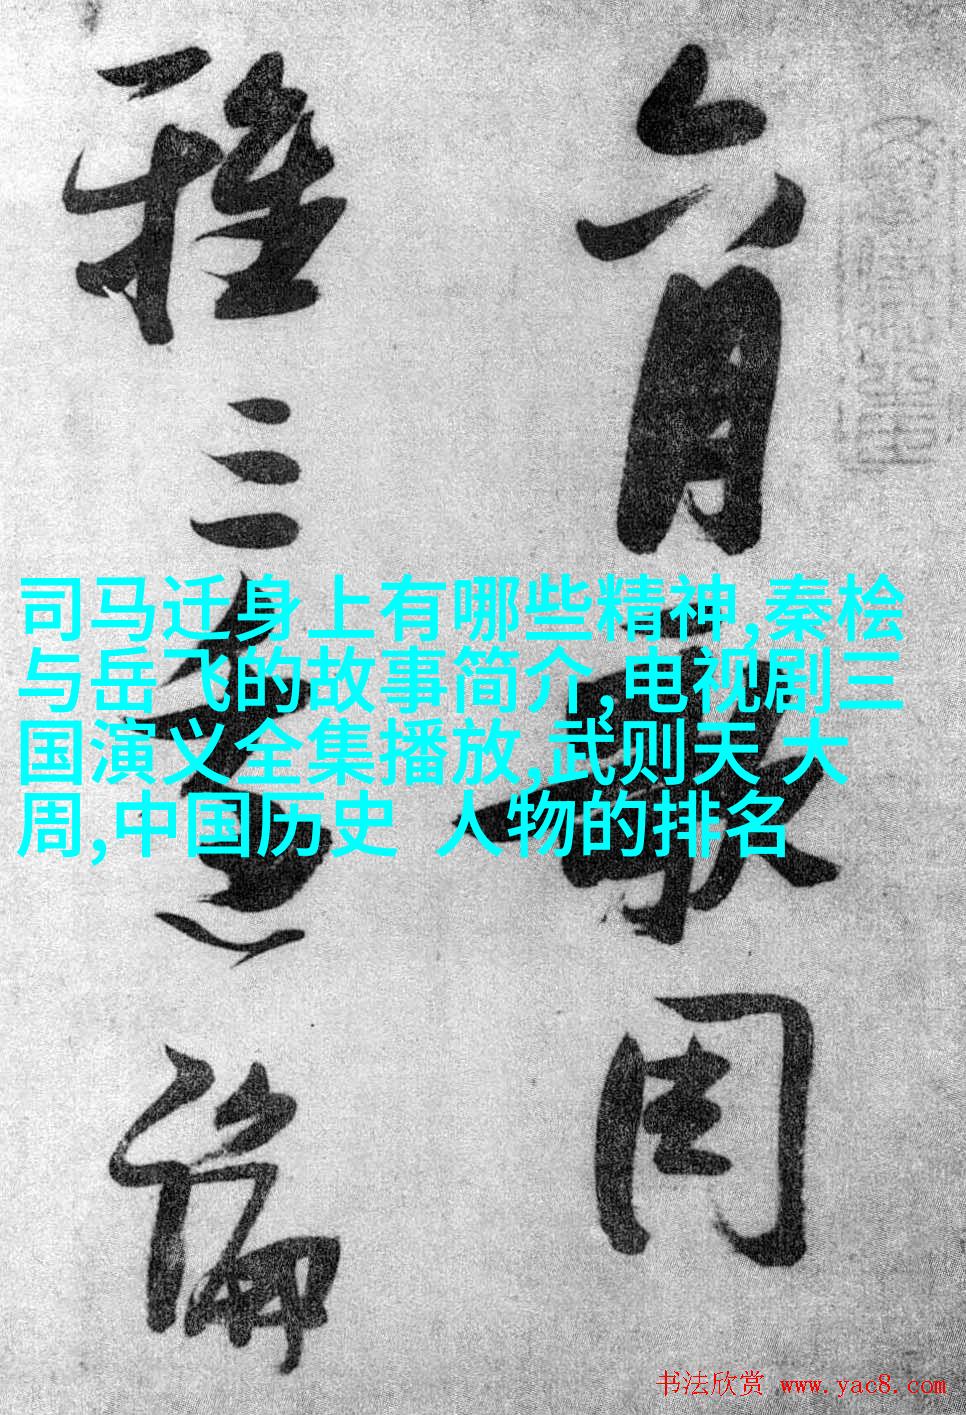 司马迁身上有哪些精神,秦桧
与岳飞的故事简介,电视剧三
国演义全集播放,武则天 大
周,中国历史 人物的排名
六月
三
論
书法欣赏 www.yac8.com